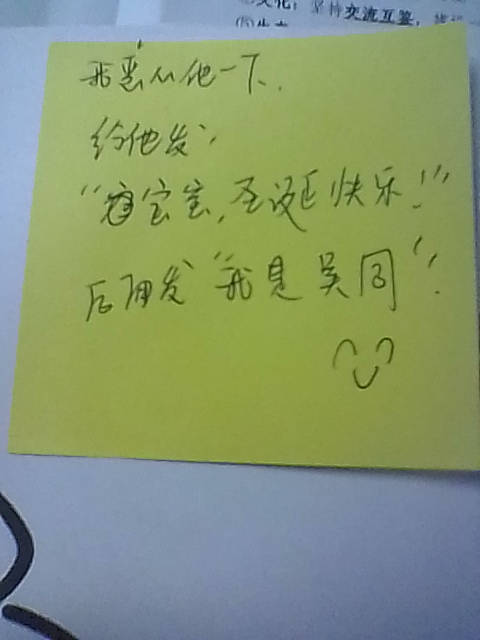 文化：坚持交流互鉴，
我恶心他一下.
给他发，
"宝宝,圣诞快乐!"
后面发"我是吴同".